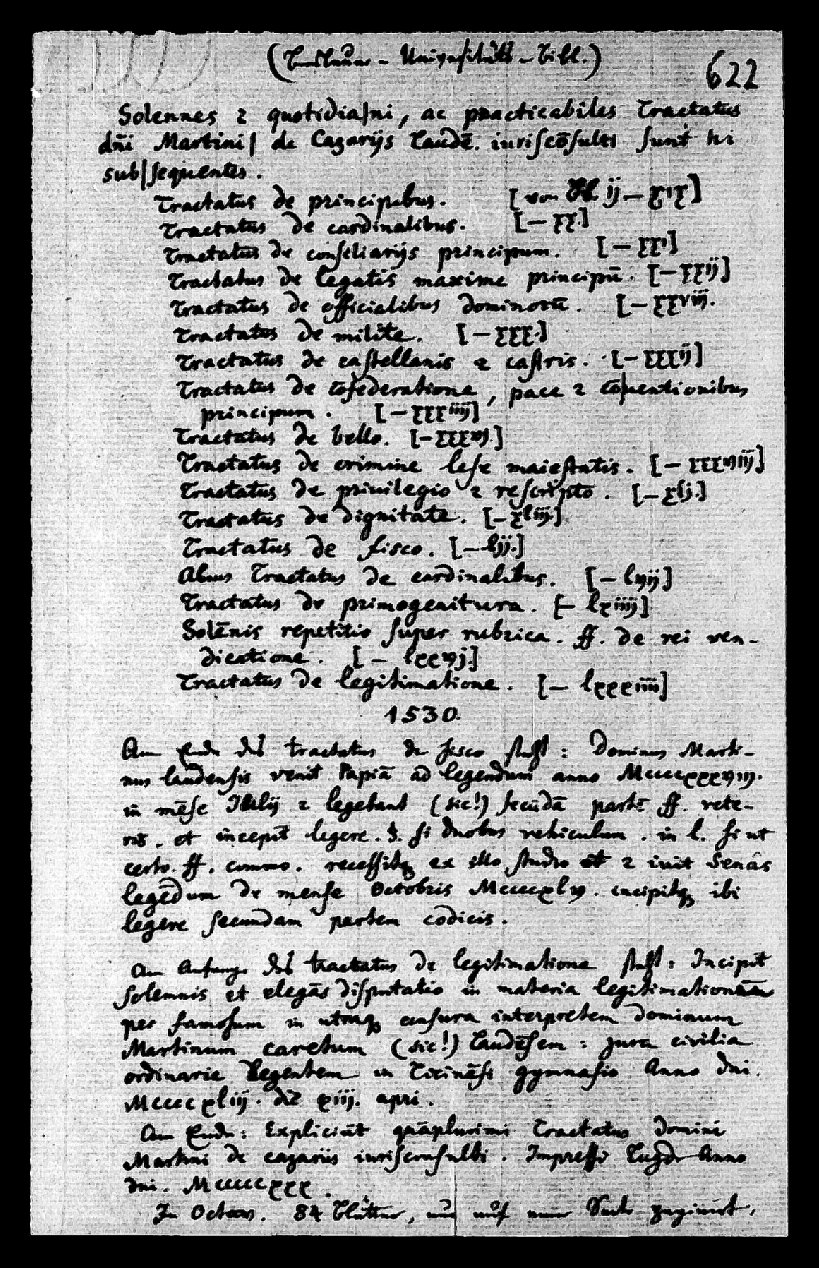 622
Solennes ⁊ quotidia/ni, ac practicabiles Tractatus
dn̄i Martini/ de Cazarijs Laudē. iuriscōsulti sunt hi
sub/sequentes.
Tractatus de principibus. [von Bl. ij — xix]
Tractatus de cardinalibus. [— xx.]
Tractatus de consiliarijs principum. [— xxi]
Tractatus de legatis maxime principū. [— xxij]
Tractatus de officialibus dominorū. [— xxviij.
Tractatus de milite. [— xxx.]
Tractatus de castellanis ⁊ castris. [— xxxij]
Tractatus de cōfederatione, pace ⁊ cōuentionibus
principum. [— xxxiiij]
Tractatus de bello. [— xxxvj.]
Tractatus de crimine lese maiestatis. [— xxxviij]
Tractatus de priuilegio ⁊ rescripto. [— xlj.]
Tractatus de dignitate. [— xliij.]
Tractatus de fisco. [— lij.]
Alius Tractatus de cardinalibus. [— lvij]
Tractatus de primogenitura. [— lxiiij]
Solēnis repetitio super rubrica. ff. de rei ven-
dicatione. [— lxxvj.]
Tractatus de legitimatione. [— lxxxiiij]
1530.
Am Ende des tractatus de fisco steht: Dominus Marti-
nus laudensis venit Papiā ad legendum anno Mccccxxxviij.
in mēse Iulij ⁊ legebant (sic!) secūdā partē ff. vete-
ris. et incepit legere. §. si duobus vehiculum. in l. si ut
certo. ff. commo. recessitq; ex illo studio et ⁊ iuit Senās
legēdum de mense Octobris Mccccxlv. incipitq; ibi
legere secundam partem codicis.
Am Anfange des tractatus de legitimatione steht: Incipit
solennis et elegās disputatio in materia legitimationum
per famosum in utraq; censura interpretem dominum
Martinum caretum (sic!) Laudēsem: jura civilia
ordinarie legentem in Ticinēsi gymnasio Anno dni.
Mccccxliij. die xiiij. apri.
Am Ende: Expliciūt quāplurimi Tractatus Domini
Martini de cazariis iurisconsulti. Impressi Lugd. Anno
dni. Mcccccxxx.
In Octav. 84 Blätter,